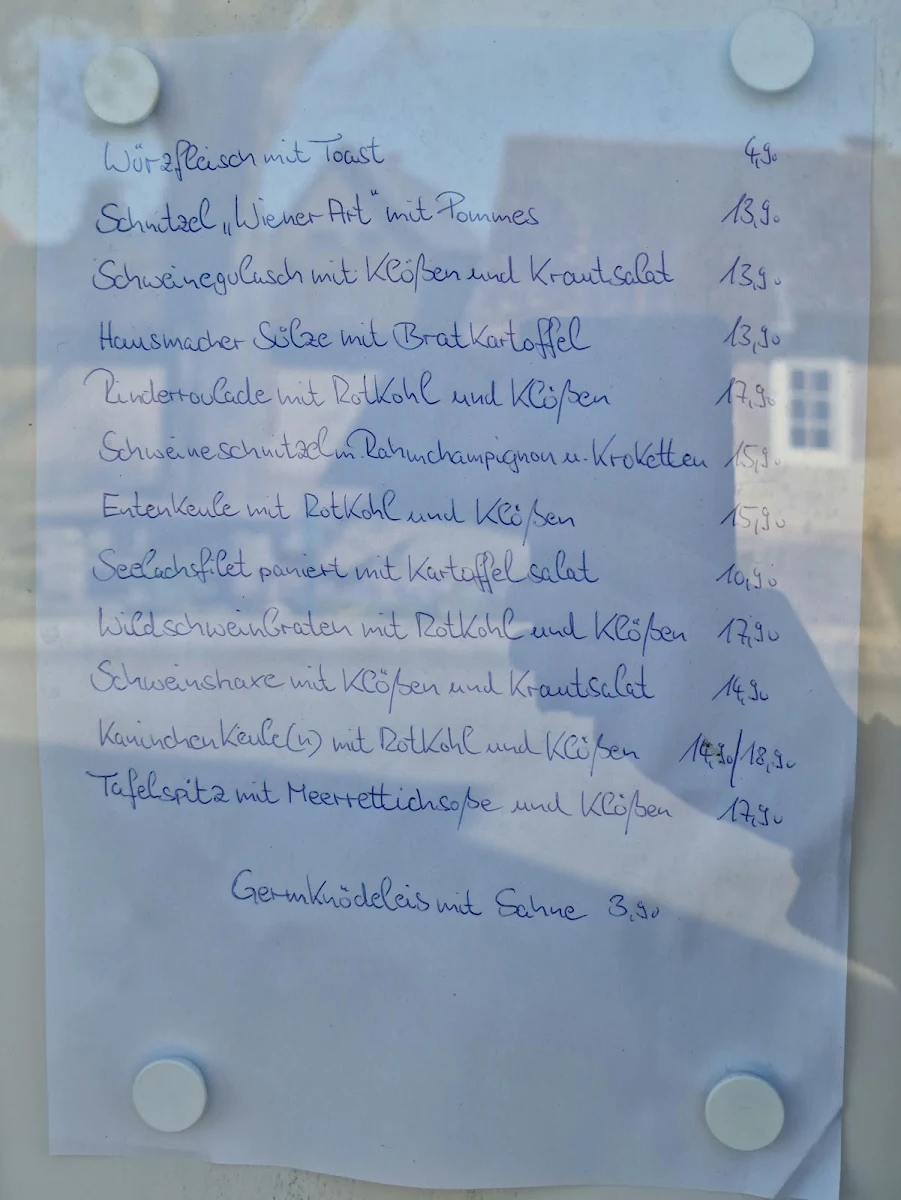 Würzfleisch mit Toast 4,90
Schnitzel „Wiener Art" mit Pommes 13,90
Schweinegulasch mit Klößen und Krautsalat 13,90
Hausmacher Sülze mit Bratkartoffel 13,90
Rinderroulade mit Rotkohl und Klößen 17,90
Schweineschnitzel m. Rahmchampignon u. Kroketten 15,90
Entenkeule mit Rotkohl und Klößen 15,90
Seelachsfilet paniert mit Kartoffelsalat 10,90
Wildschweinbraten mit Rotkohl und Klößen 17,90
Schweinshaxe mit Klößen und Krautsalat 14,90
Kaninchenkeule(n) mit Rotkohl und Klößen 14,90/18,90
Tafelspitz mit Meerrettichsoße und Klößen 17,90
Germknödeleis mit Sahne 3,90